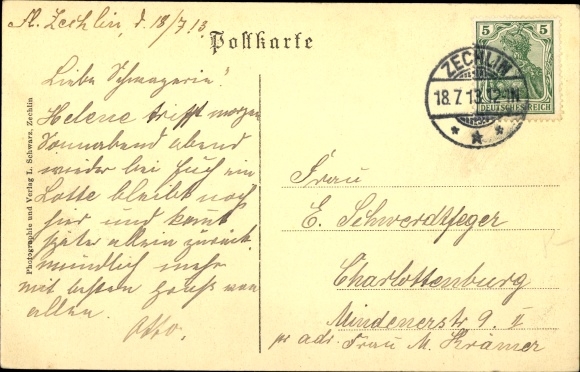 Fl. Zechlin, d. 18/7 13.
Postkarte
Liebe Schwägerin!
Helene trifft morgen
Sonnabend abend
wieder bei Euch ein
Lotte bleibt noch
hier und kommt
später allein zurück.
mündlich mehr
mit besten Gruß von
allen.
Otto.
Photographie und Verlag L. Schwarz, Zechlin
5 5
DEUTSCHES REICH
ZECHLIN
18.7.13.12-1N
Frau
E. Schwerdtfeger
Charlottenburg
Mindenerstr 9. II
pr adr. Frau M. Krämer